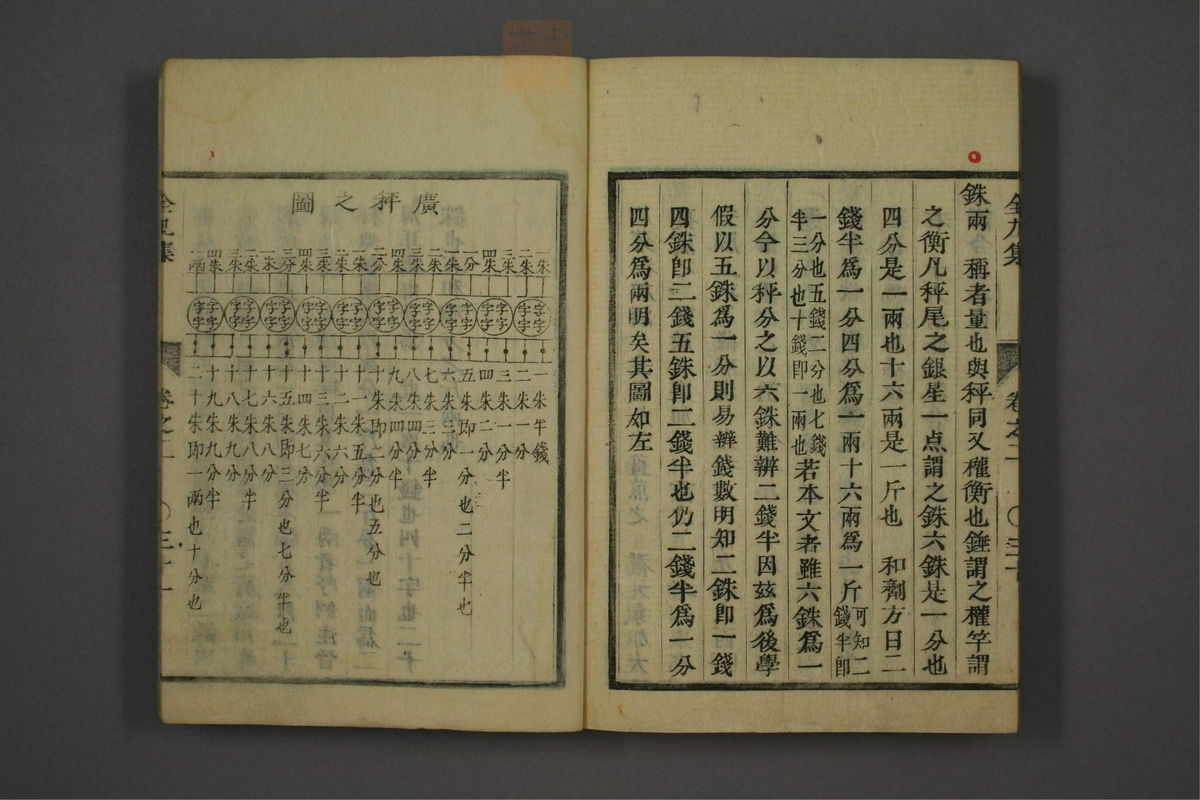 銖兩　稱者量也與秤同又權衡也錘謂之權竿謂
之衡凡秤尾之銀星一点謂之銖六銖是一分也
四分是一兩也十六兩是一斤也　和劑方曰二
錢半爲一分四分爲一兩十六兩爲一斤可知二錢半即
一分也五錢二分也七錢半三分也十錢即一兩也若本文者雖六銖爲一
分今以秤分之以六銖難辨二錢半因茲爲後學
假以五銖爲一分則易辨錢數明知二銖即一錢
四銖即二錢五銖即二錢半也仍二錢半爲一分
四分爲兩明矣其圖如左
全九集
卷之一
廣秤之圖
一朱半錢
二朱一分
三朱一分半
四朱二分
五朱即一分也二分半也
六朱三分
七朱三分半
八朱四分
九朱四分半
十朱即二分也五分也
十一朱五分半
十二朱六分
十三朱六分半
十四朱七分
十五朱即三分也七分半也
十六朱八分
十七朱八分半
十八朱九分
十九朱九分半
二十朱即一兩也十分也
全九集
卷之一